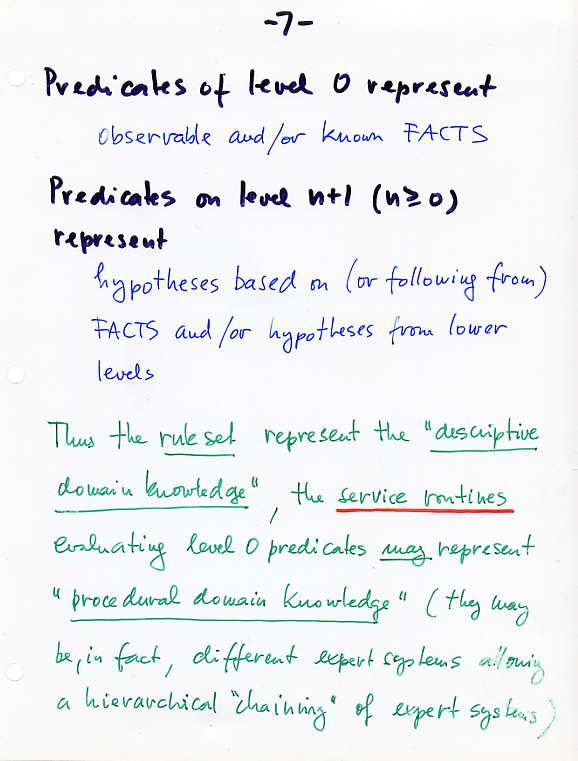 -7-
Predicates of level 0 represent
observable and/or known FACTS
Predicates on level n+1 (n≥0)
represent
hypotheses based on (or following from)
FACTS and/or hypotheses from lower
levels
Thus the rule set represent the "descriptive
domain knowledge", the service routines
evaluating level 0 predicates may represent
"procedural domain knowledge" (they may
be, in fact, different expert systems allowing
a hierarchical "chaining" of expert systems)